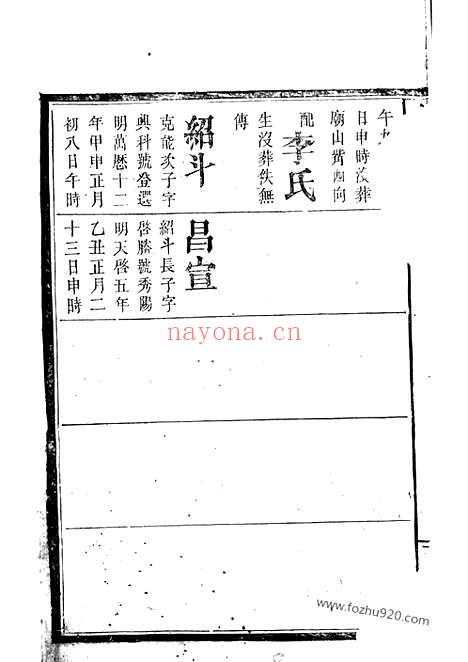 午
日申時没葬
廟山黄向
配李氏
生没葬佚無
傳
紹斗
克能次子字
興科號登選
明萬厯十二
年甲申正月
初八日午時
昌宣
紹斗長子字
啓勝號秀陽
明天啓五年
乙丑正月二
十三日申時
nayona.cn
www.fozhu920.com